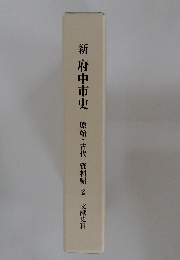 新 府中市史 原始・古代 資料編 2 文献史料